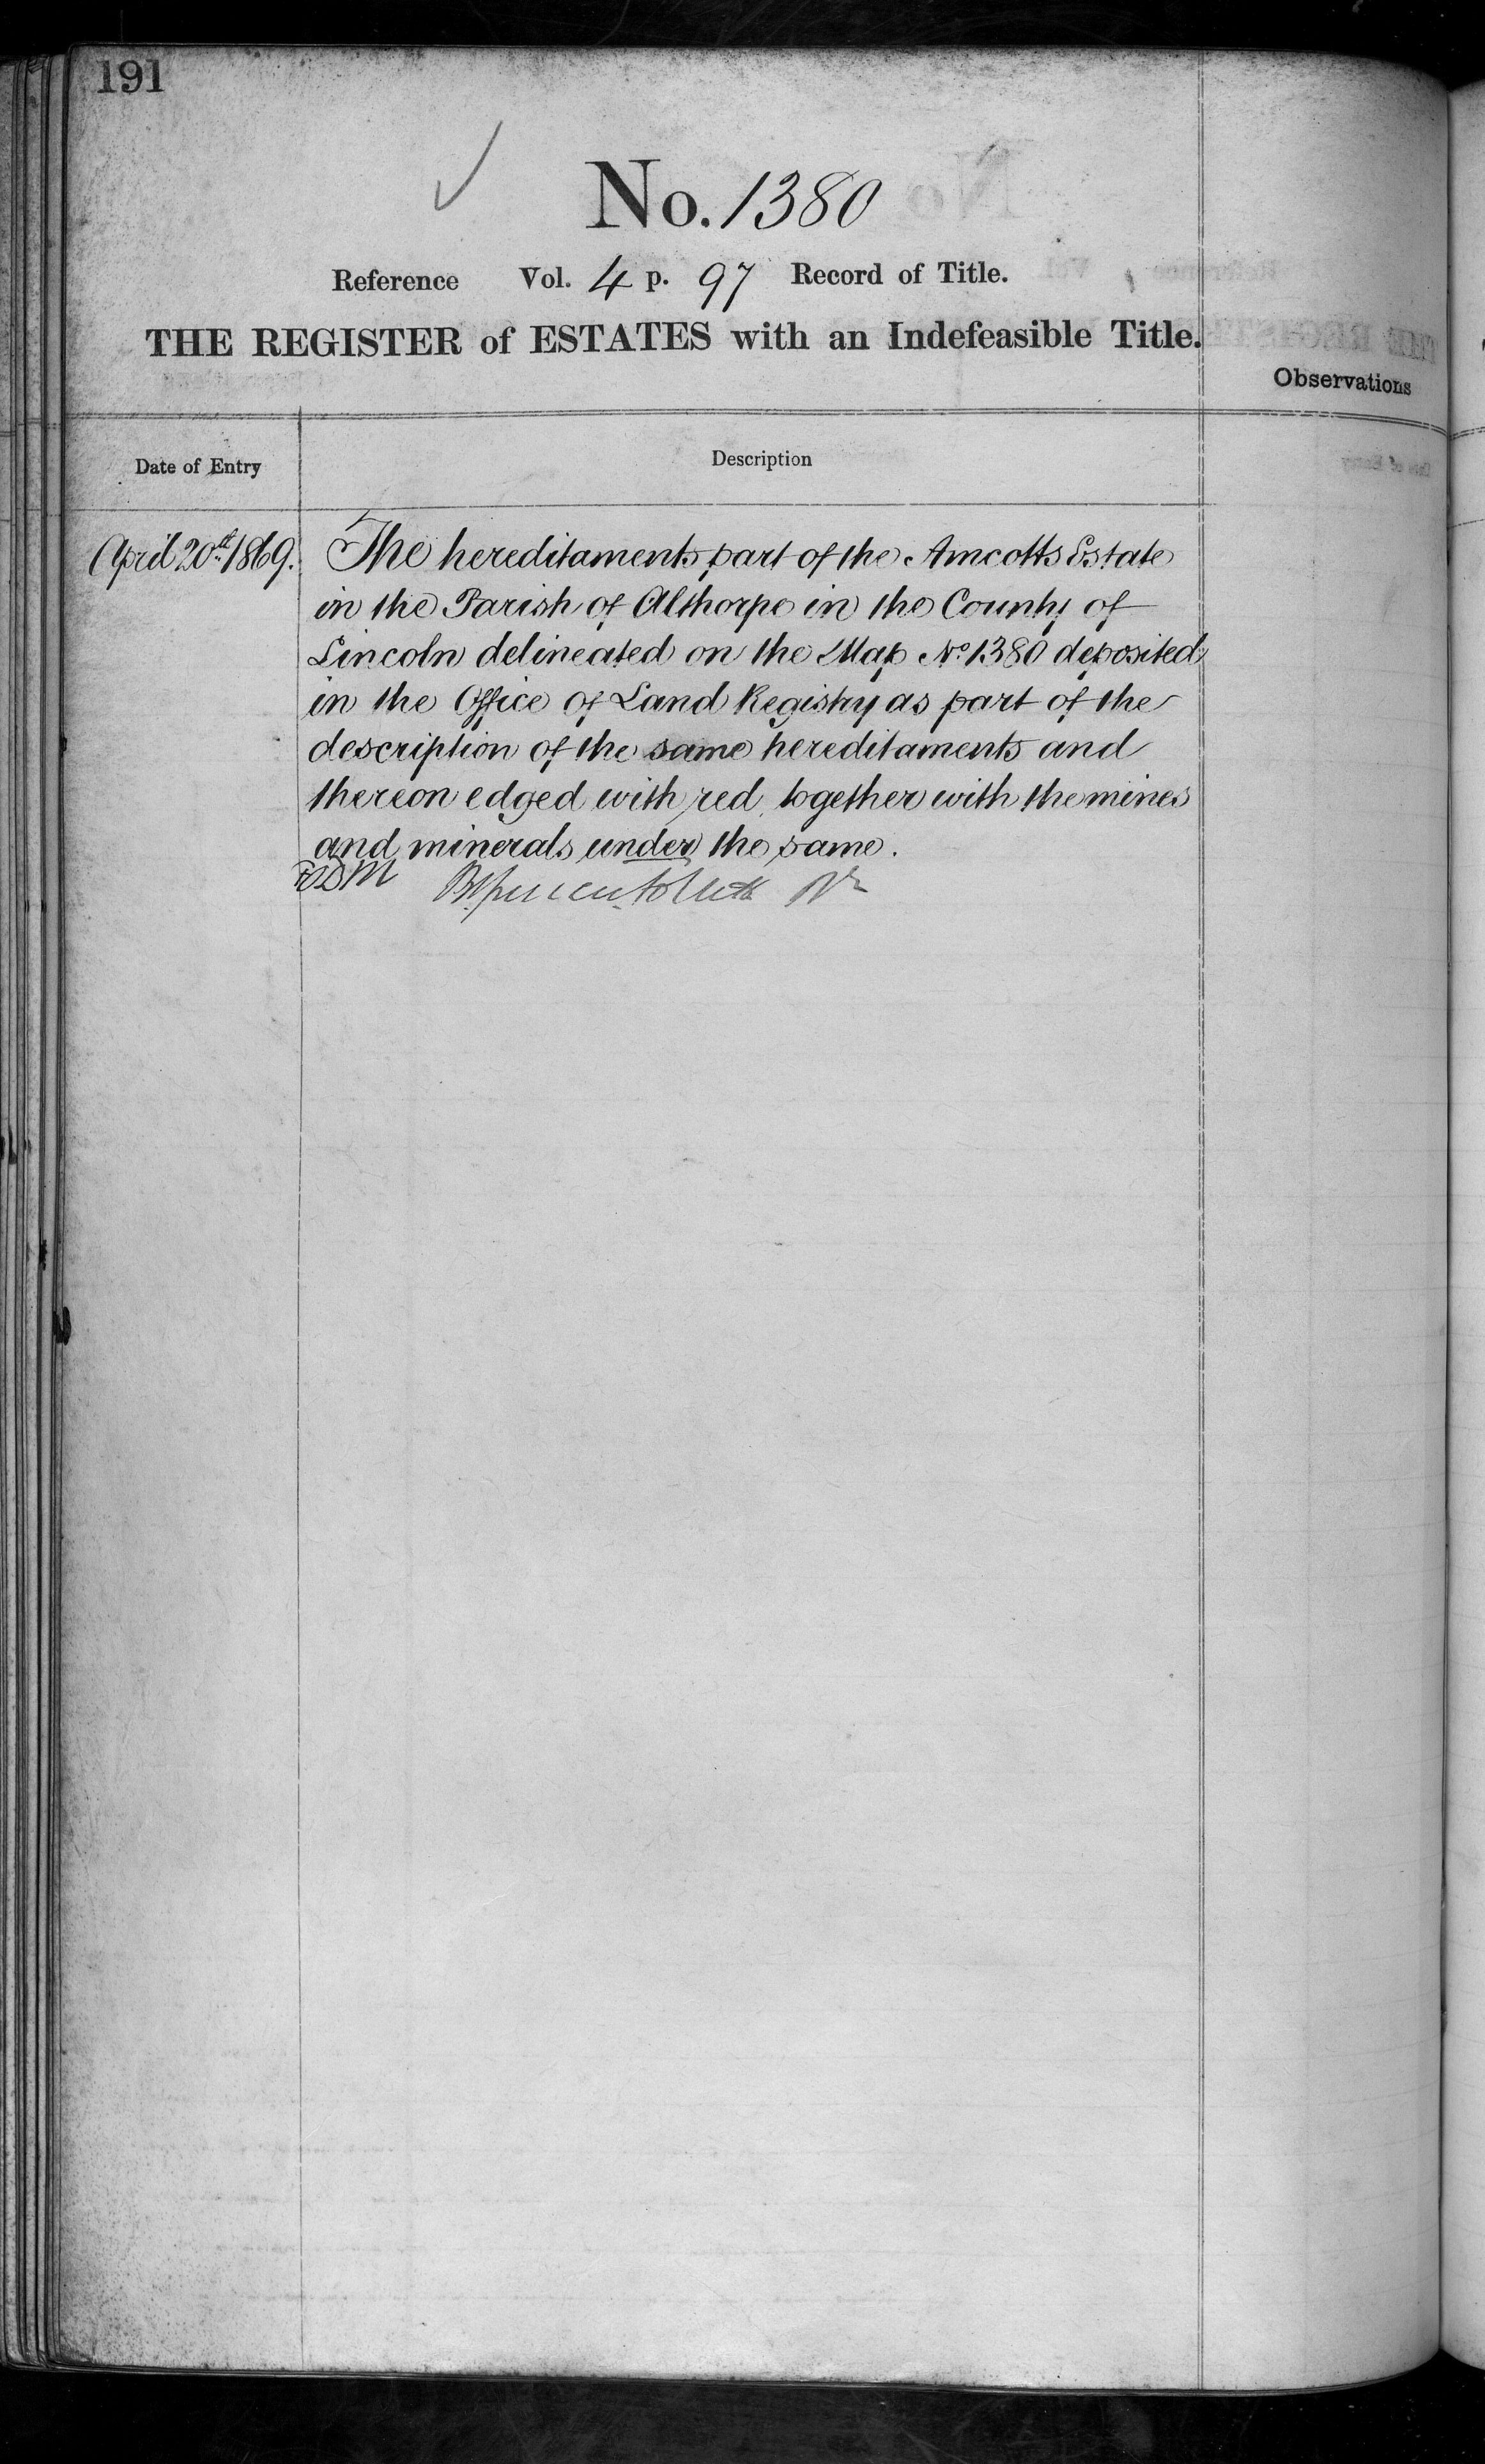 191
No. 1380
Reference Vol. 4 p. 97 Record of Title.
THE REGISTER of ESTATES with an Indefeasible Title.
Observations
Date of Entry
Description
April 20th 1869.
The hereditaments part of the Amcotts Estate
in the Parish of Althorpe in the County of
Lincoln delineated on the Map No. 1380 deposited
in the Office of Land Registry as part of the
description of the same hereditaments and
thereon edged with red, together with the mines
and minerals under the same.